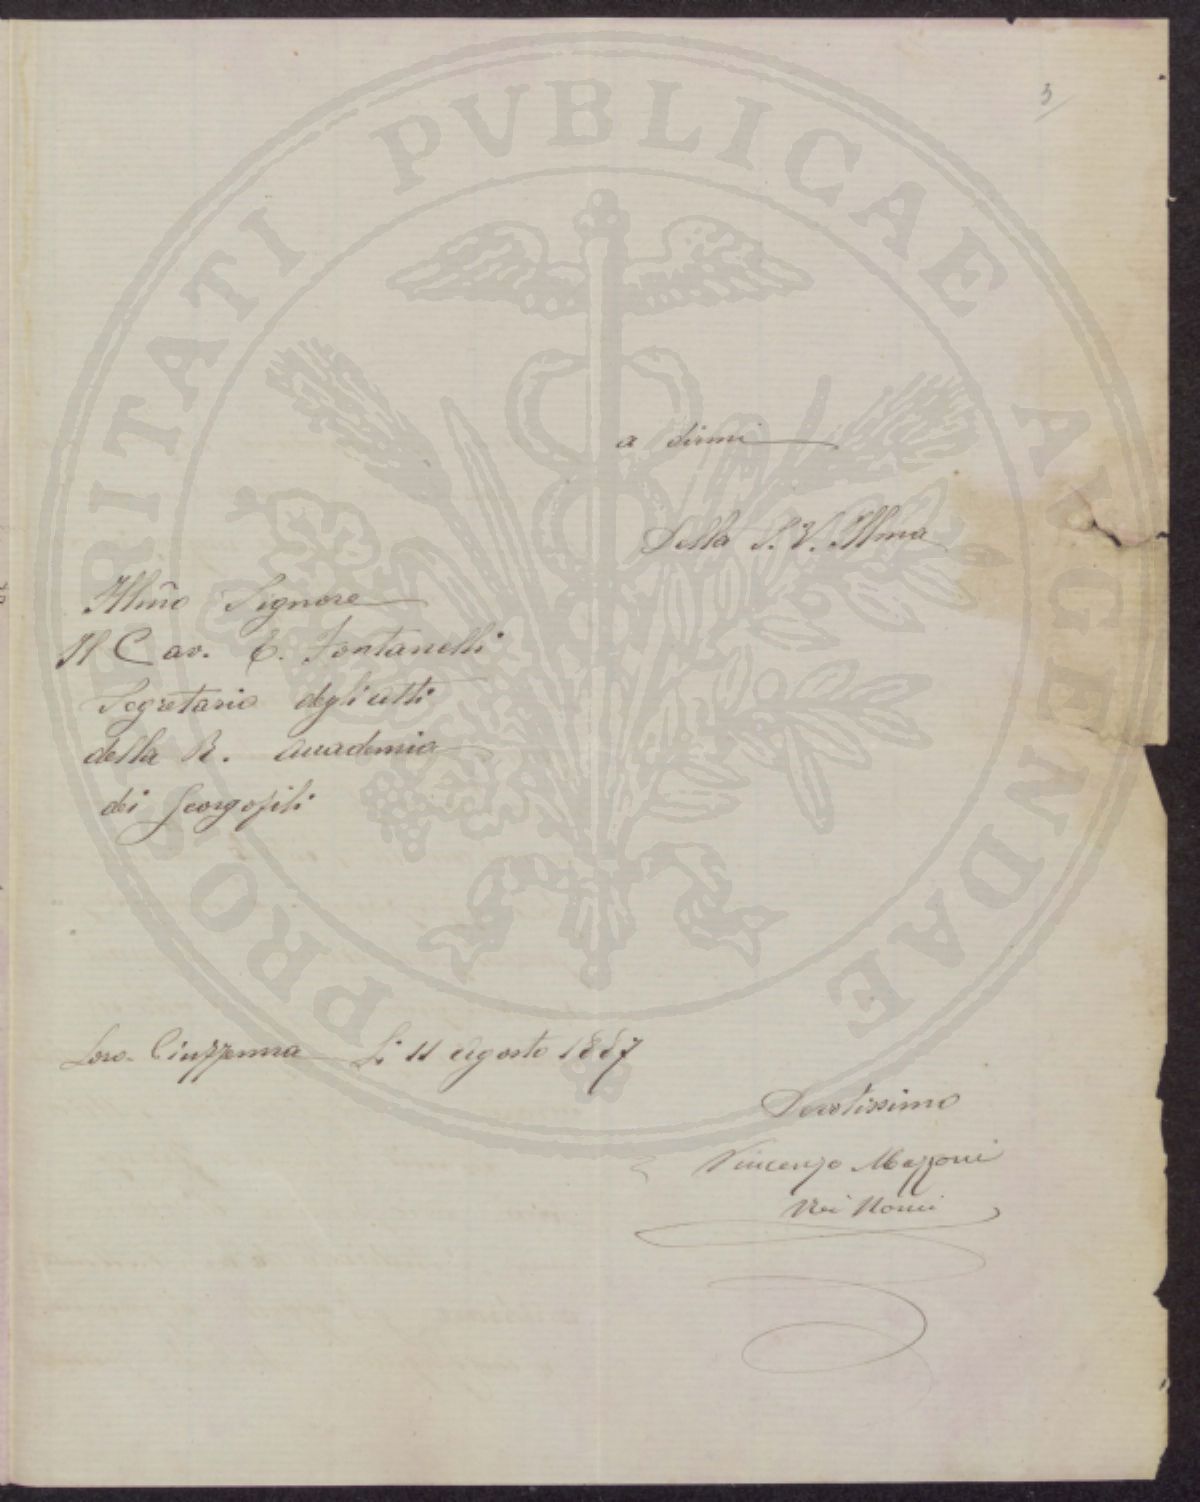 3
a dirmi
Della S. V. Illma
Illmo Signore
Il Cav. E. Fontanelli
Segretario degli atti
della R. Accademia
dei Georgofili
Loro-Ciuffenna Li 11 Agosto 1887
Devotissimo
Vincenzo Mazzoni
Nei Nomi
PROSPERITATI PVBLICAE AVGENDAE